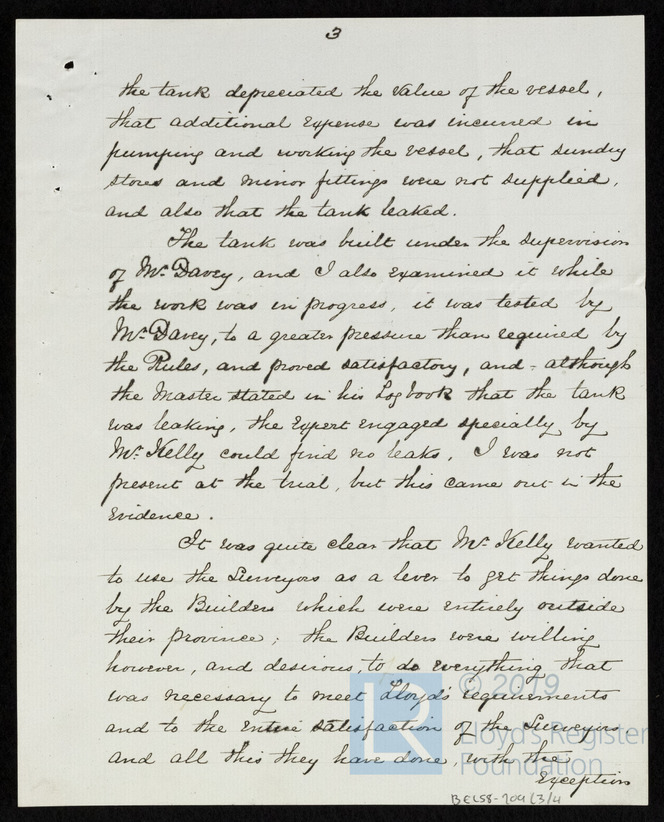 3
the tank depreciated the value of the vessel,
that additional expense was incurred in
pumping and working the vessel, that sundry
stores and minor fittings were not supplied,
and also that the tank leaked.
The tank was built under the supervision
of Mr. Davey, and I also examined it while
the work was in progress, it was tested by
Mr. Davey, to a greater pressure than required by
the Rules, and proved satisfactory, and - although
the Master stated in his Logbook that the tank
was leaking, the expert engaged specially by
Mr. Kelly could find no leaks. I was not
present at the trial, but this came out in the
evidence.
It was quite clear that Mr. Kelly wanted
to use the Surveyors as a lever to get things done
by the Builders which were entirely outside
their province; the Builders were willing
however, and desirous, to do everything that
was necessary to meet Lloyd's requirements
and to the entire satisfaction of the Surveyors,
and all this they have done, with the
Exception
LR © 2019
Lloyd's Register
Foundation
BEL58-709(3/4